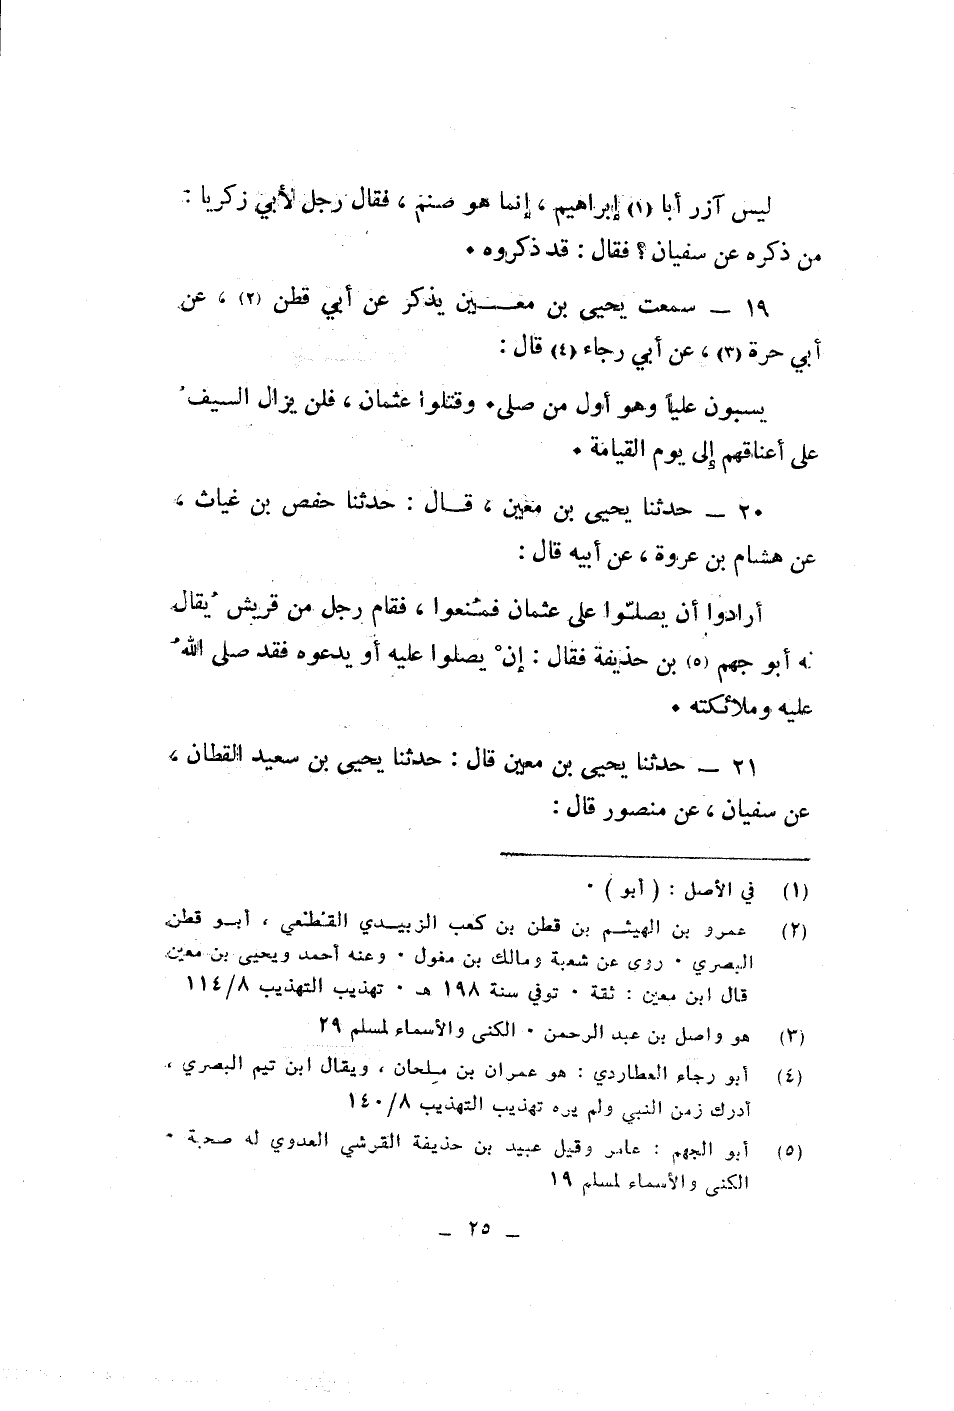 ليس آزر أبا (١) إبراهيم ، إنما هو صنم ، فقال رجل لأبي زكريا :
من ذكره عن سفيان ؟ فقال : قد ذكروه .
١٩ ــ سمعت يحيى بن معـــين يذكر عن أبي قطن (٢) ، عن
أبي حرة (٣) ، عن أبي رجاء (٤) قال :
يسبون علياً وهو أول من صلى . وقتلوا عثمان ، فلن يزال السيفُ
على أعناقهم إلى يوم القيامة .
٢٠ ــ حدثنا يحيى بن معين ، قــال : حدثنا حفص بن غياث ،
عن هشام بن عروة ، عن أبيه قال :
أرادوا أن يصلّوا على عثمان فمُنعوا ، فقام رجل من قريش يُقال
له أبو جهم (٥) بن حذيفة فقال : إنْ يصلوا عليه أو يدعوه فقد صلى اللهُ
عليه وملائكته .
٢١ ــ حدثنا يحيى بن معين قال : حدثنا يحيى بن سعيد القطان ،
عن سفيان ، عن منصور قال :
(١) في الأصل : ( أبو ) .
(٢) عمرو بن الهيثم بن قطن بن كعب الزبيدي القُطَعي ، أبو قطن
البصري . روى عن شعبة ومالك بن مغول . وعنه أحمد ويحيى بن معين
قال ابن معين : ثقة . توفي سنة ١٩٨ هـ . تهذيب التهذيب ١١٤/٨
(٣) هو واصل بن عبد الرحمن . الكنى والأسماء لمسلم ٢٩
(٤) أبو رجاء العطاردي : هو عمران بن ملحان ، ويقال ابن تيم البصري ،
أدرك زمن النبي ولم يره تهذيب التهذيب ١٤٠/٨
(٥) أبو الجهم : عامر وقيل عبيد بن حذيفة القرشي العدوي له صحبة .
الكنى والأسماء لمسلم ١٩
ــ ٢٥ ــ